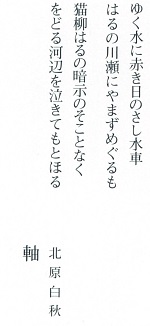 ゆく水に赤き日のさし水車
はるの川瀬にやまずめぐるも
猫柳はるの暗示のそことなく
をどる河辺を泣きてもとほる
北原白秋
軸